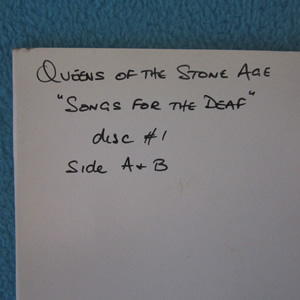 QUEENS OF THE STONE AGE
"SONGS FOR THE DEAF"
disc #1
Side A + B